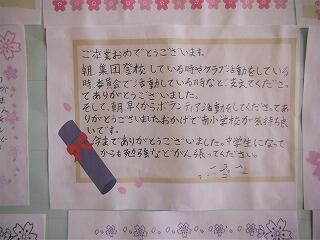 ご卒業おめでとうございます。
朝、集団登校している時やクラブ活動をしている
時、委員会で活動している時など、支えてくださっ
てありがとうございました。
そして、朝早くからボランティア活動をしてくださってあ
りがとうございました。おかげで南小学校が気持ち良
いです。
今までありがとうございました。中学生になって
からも勉強などがん張ってください。